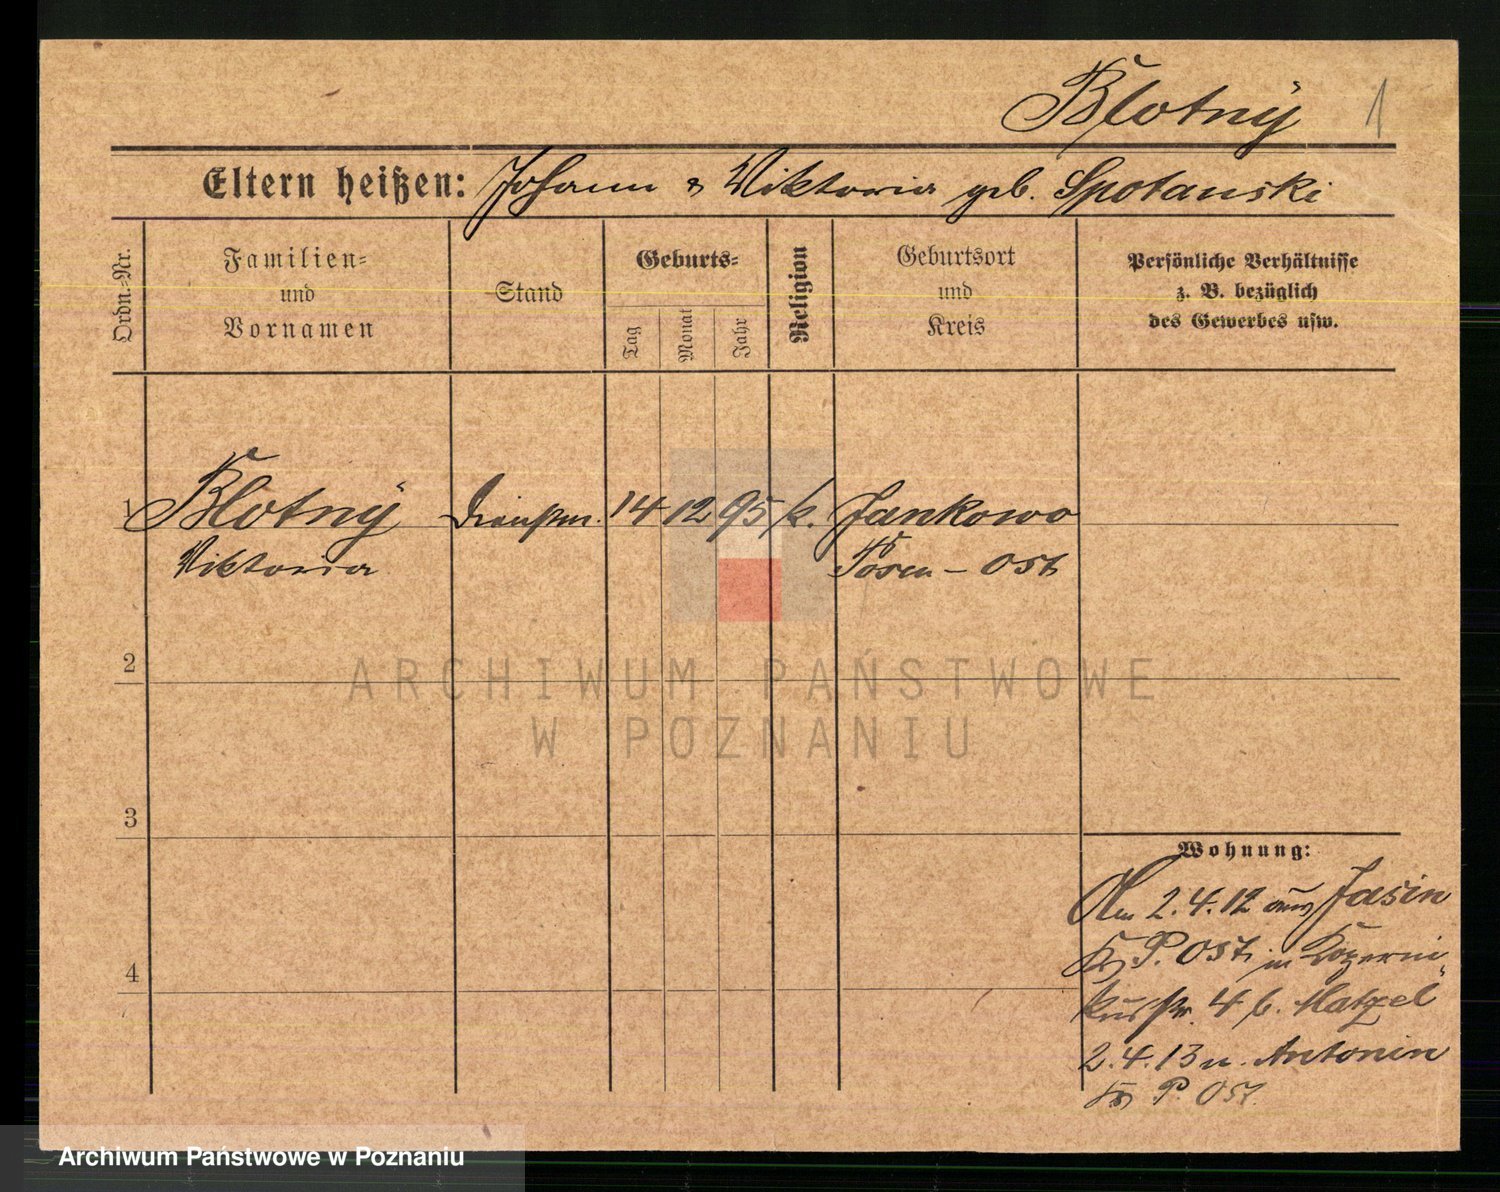 Blotnÿ 1
Eltern heißen: Johann & Viktoria geb. Spotanski
Ordn.-Nr.
Familien-
und
Vornamen
Stand
Geburts-
Tag
Monat
Jahr
Religion
Geburtsort
und
Kreis
Persönliche Verhältnisse
z. B. bezüglich
des Gewerbes usw.
1 Blotnÿ Dienstm. 14 12 95 k. Jankowo
Viktoria Posen - Ost
2
3
4
Wohnung:
Am 2.4.12 aus Jasin
P. Ost in
str. 4 b. Matzel
2.4.13 n. Antonin
P. Ost.
ARCHIWUM PAŃSTWOWE
W POZNANIU
Archiwum Państwowe w Poznaniu